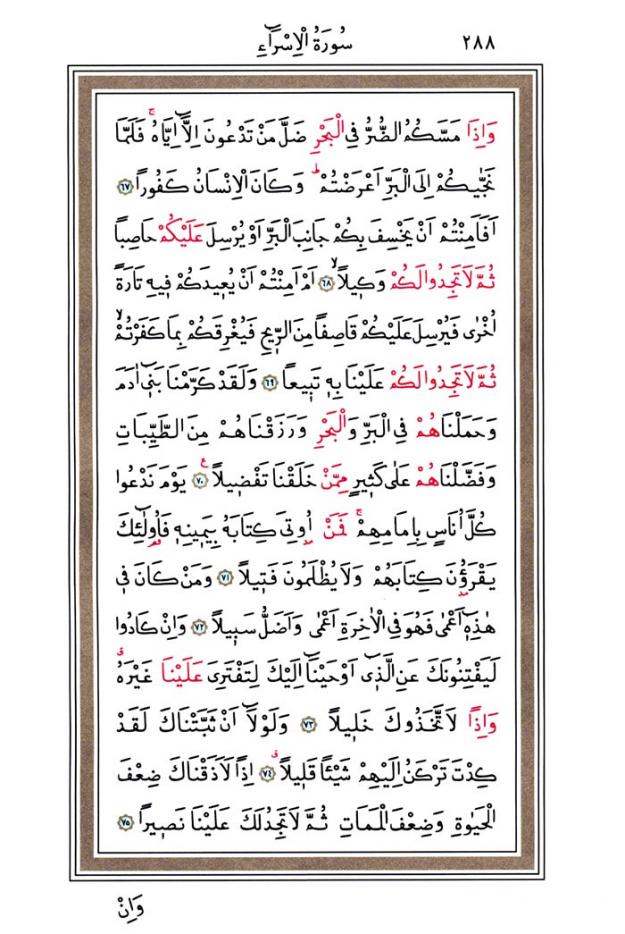 ٢٨٨ سُورَةُ الْاِسْرَٓاءِ
وَاِذَا مَسَّكُمُ الضُّرُّ فِى الْبَحْرِ ضَلَّ مَنْ تَدْعُونَ اِلَّٓا اِيَّاهُۚ فَلَمَّا
نَجّٰيكُمْ اِلَى الْبَرِّ اَعْرَضْتُمْۜ وَكَانَ الْاِنْسَانُ كَفُورًا ٦٧
اَفَاَمِنْتُمْ اَنْ يَخْسِفَ بِكُمْ جَانِبَ الْبَرِّ اَوْ يُرْسِلَ عَلَيْكُمْ حَاصِبًا
ثُمَّ لَا تَجِدُوا لَكُمْ وَكٖيلًاۙ ٦٨ اَمْ اَمِنْتُمْ اَنْ يُعٖيدَكُمْ فٖيهِ تَارَةً
اُخْرٰى فَيُرْسِلَ عَلَيْكُمْ قَاصِفًا مِنَ الرّٖيحِ فَيُغْرِقَكُمْ بِمَا كَفَرْتُمْۙ
ثُمَّ لَا تَجِدُوا لَكُمْ عَلَيْنَا بِهٖ تَبٖيعًا ٦٩ وَلَقَدْ كَرَّمْنَا بَنٖٓى اٰدَمَ
وَحَمَلْنَاهُمْ فِى الْبَرِّ وَالْبَحْرِ وَرَزَقْنَاهُمْ مِنَ الطَّيِّبَاتِ
وَفَضَّلْنَاهُمْ عَلٰى كَثٖيرٍ مِمَّنْ خَلَقْنَا تَفْضٖيلًاࣖ ٧٠ يَوْمَ نَدْعُوا
كُلَّ اُنَاسٍ بِاِمَامِهِمْۚ فَمَنْ اُو۫تِىَ كِتَابَهُ بِيَمٖينِهٖ فَاُو۬لٰٓئِكَ
يَقْرَؤُ۫نَ كِتَابَهُمْ وَلَا يُظْلَمُونَ فَتٖيلًا ٧١ وَمَنْ كَانَ فٖى
هٰذِهٖٓ اَعْمٰى فَهُوَ فِى الْاٰخِرَةِ اَعْمٰى وَاَضَلُّ سَبٖيلًا ٧٢ وَاِنْ كَادُوا
لَيَفْتِنُونَكَ عَنِ الَّذٖٓى اَوْحَيْنَٓا اِلَيْكَ لِتَفْتَرِىَ عَلَيْنَا غَيْرَهُۗ
وَاِذًا لَاتَّخَذُوكَ خَلٖيلًا ٧٣ وَلَوْلَٓا اَنْ ثَبَّتْنَاكَ لَقَدْ
كِدْتَ تَرْكَنُ اِلَيْهِمْ شَيْـًٔا قَلٖيلًاۗ ٧٤ اِذًا لَاَذَقْنَاكَ ضِعْفَ
الْحَيٰوةِ وَضِعْفَ الْمَمَاتِ ثُمَّ لَا تَجِدُ لَكَ عَلَيْنَا نَصٖيرًا ٧٥
وَاِنْ